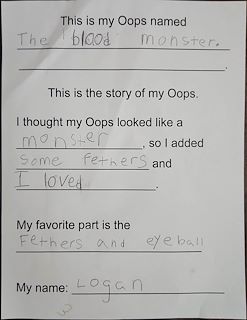 This is my Oops named
The blood monster.
This is the story of my Oops.
I thought my Oops looked like a
monster, so I added
some fethers and
I loved.
My favorite part is the
Fethers and eyeball
My name: Logan
3